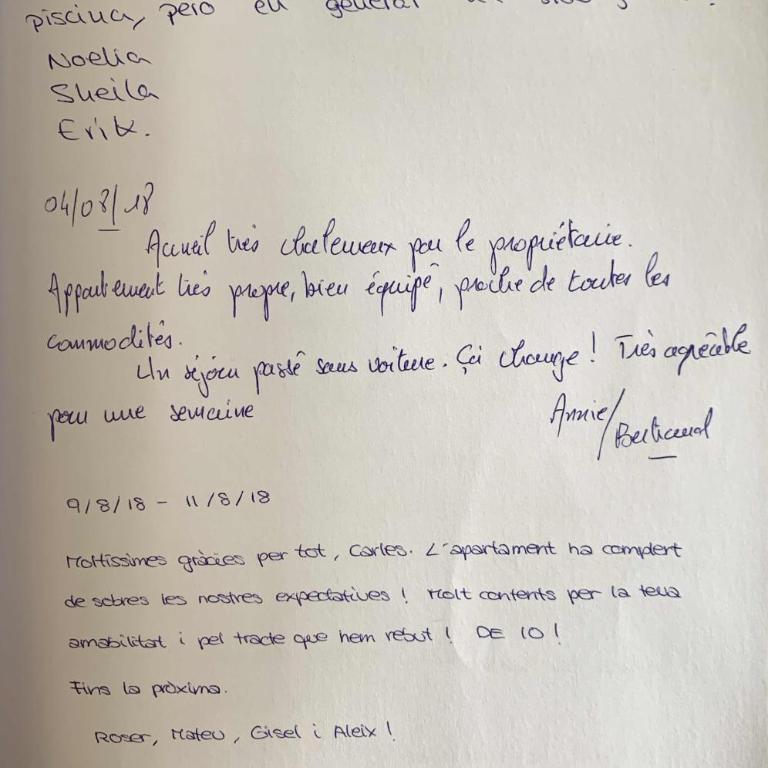 piscina, pero en general
Noelia
Sheila
Erik.
04/08/18
Accueil très chaleureux par le propriétaire.
Appartement très propre, bien équipé, proche de toutes les
commodités.
Un séjour passé sans voiture. Ça change ! Très agréable
pour une semaine
Annie/
Bertrand
9/8/18 - 11/8/18
Moltíssimes gràcies per tot, Carles. L'apartament ha complert
de sobres les nostres expectatives ! Molt contents per la teua
amabilitat i pel tracte que hem rebut ! DE 10 !
Fins la pròxima.
Roser, Mateu, Gisel i Aleix !